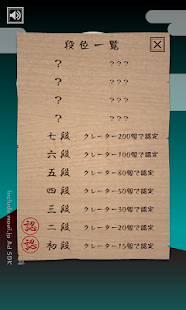 段位一覧
? ???
? ???
? ???
? ???
七段 クレーター200個で認定
六段 クレーター100個で認定
五段 クレーター80個で認定
四段 クレーター50個で認定
三段 クレーター30個で認定
認 二段 クレーター20個で認定
認 初段 クレーター15個で認定